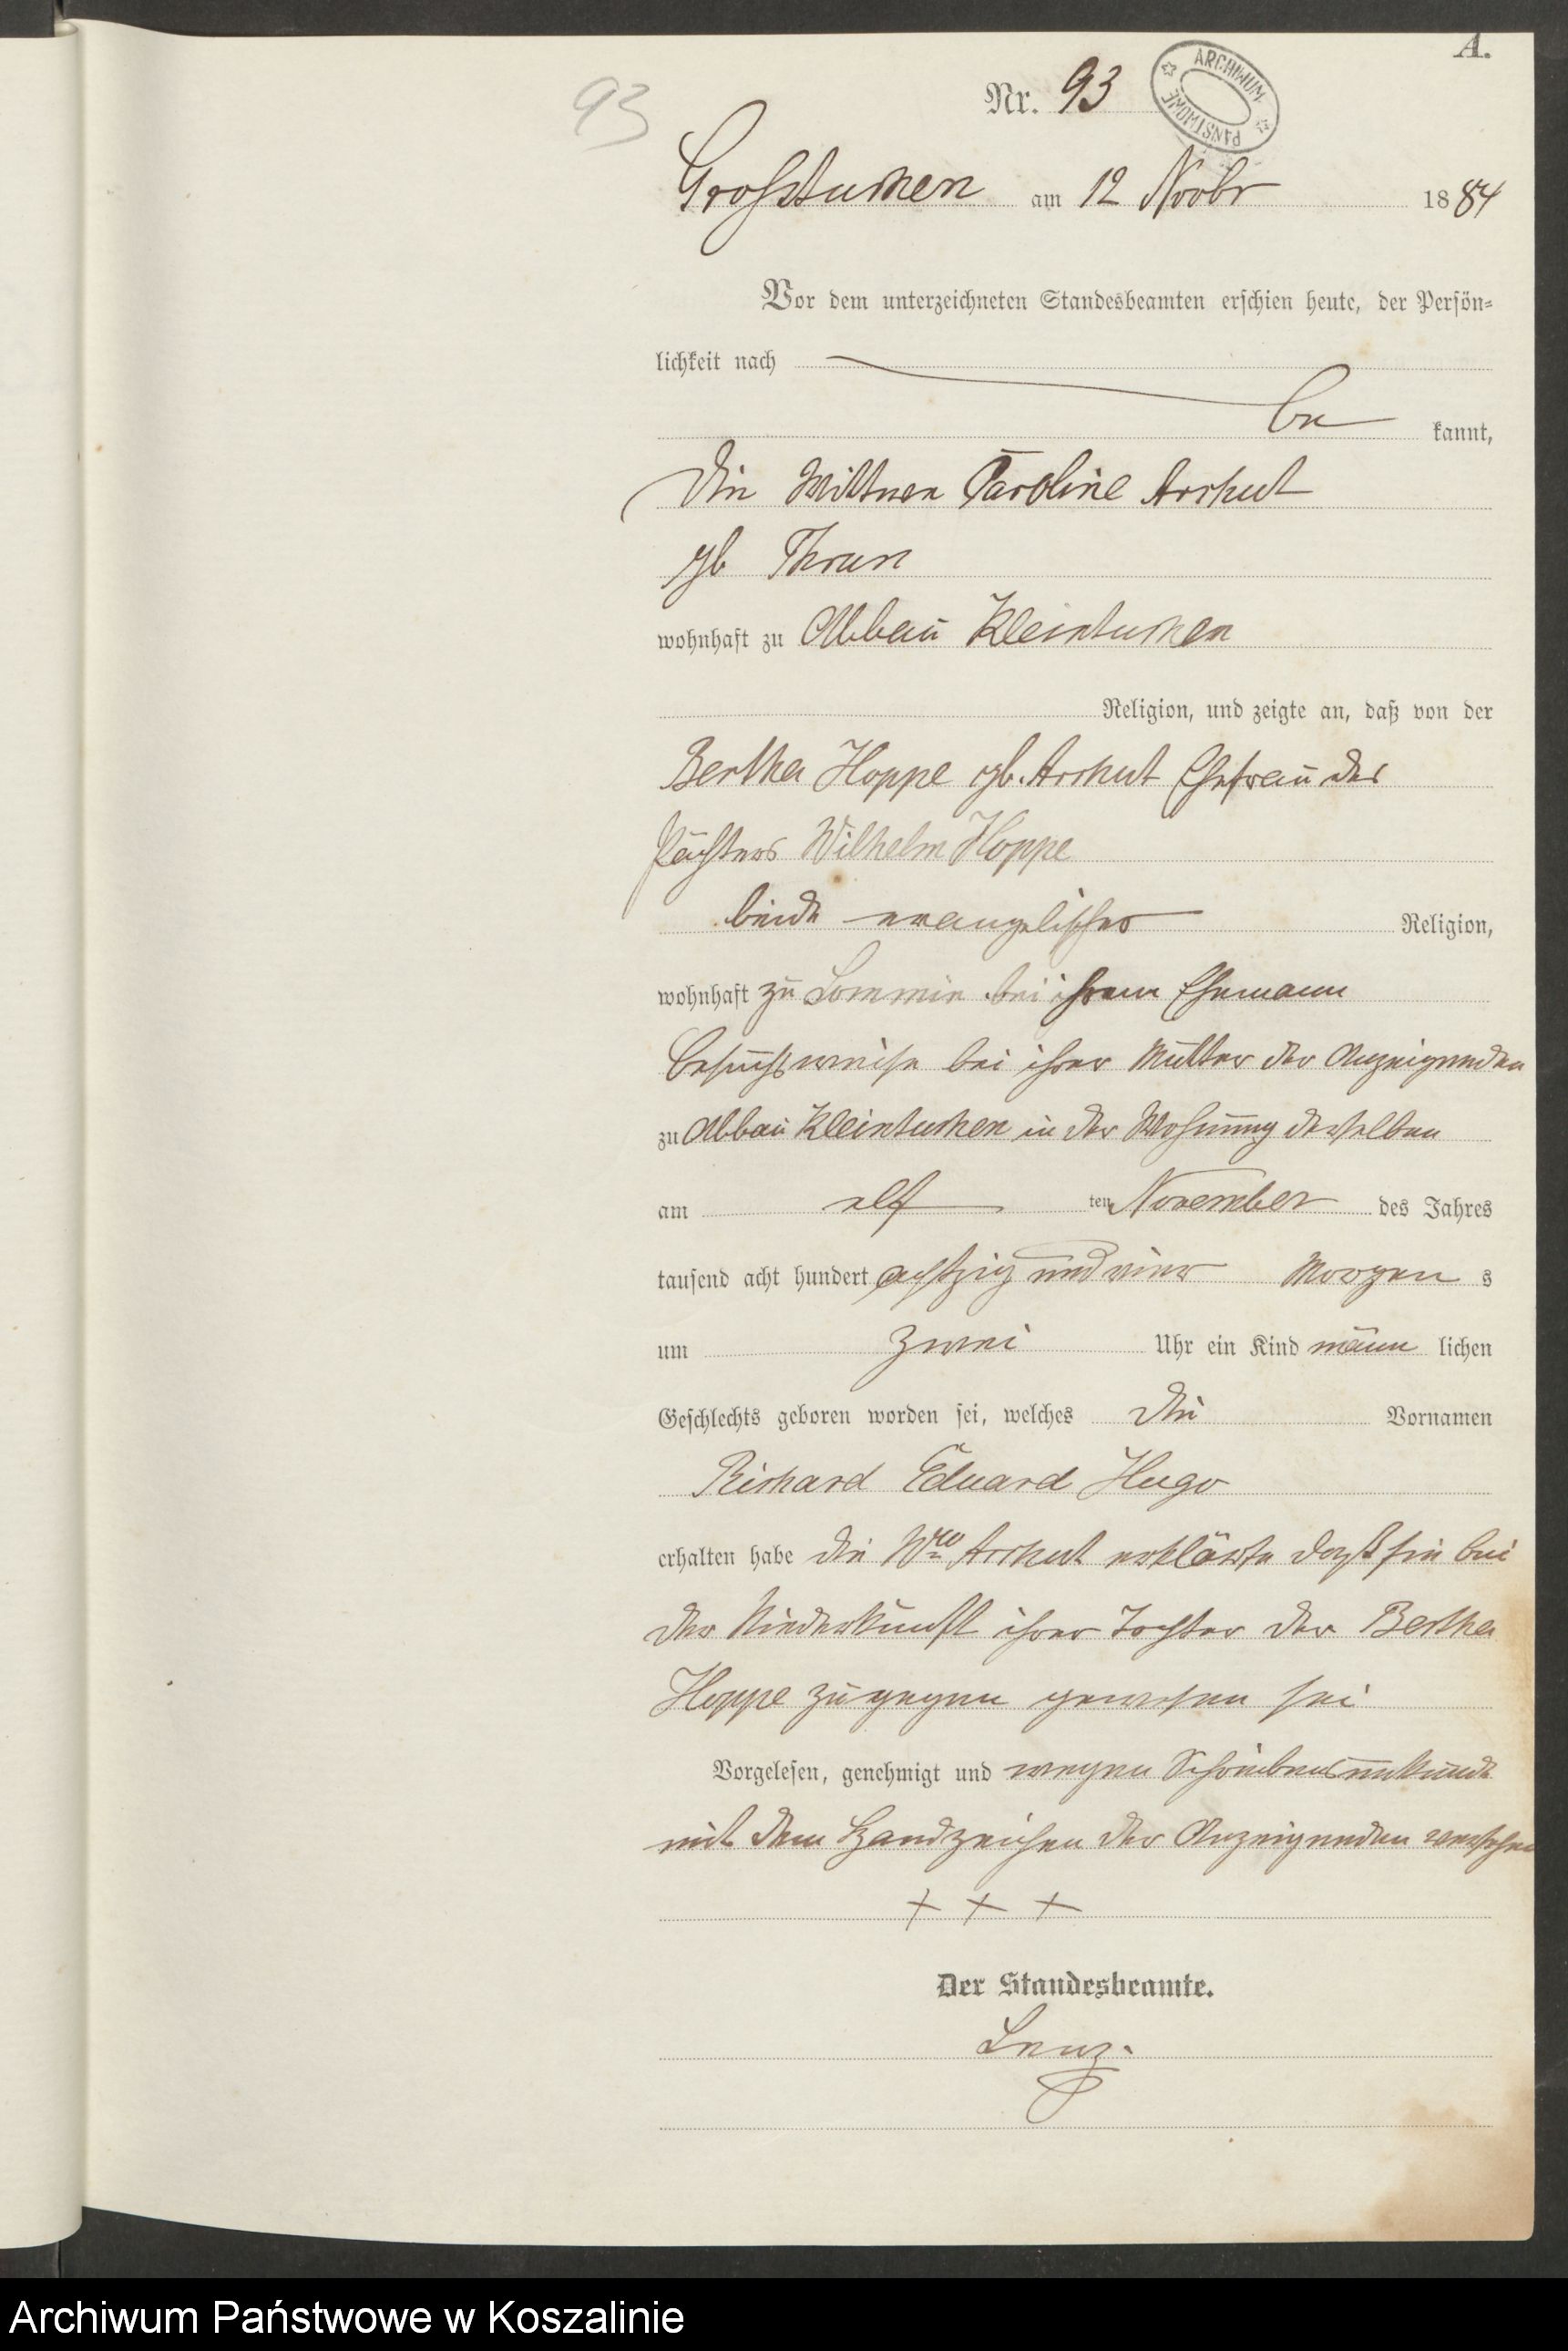 A.
93
Nr. 93
ARCHIWUM PAŃSTWOWE
Großtuchen am 12 Novbr 1884
Vor dem unterzeichneten Standesbeamten erschien heute, der Persön-
lichkeit nach
be kannt,
die Wittwe Caroline Aschut
gb Thrun
wohnhaft zu Abbau Kleintuchen
Religion, und zeigte an, daß von der
Bertha Hoppe gb. Aschut Ehefrau des
Pächters Wilhelm Hoppe
beide evangelischer Religion,
wohnhaft zu Sommin bei ihrem Ehemann
besuchsweise bei ihrer Mutter der Anzeigenden
zu Abbau Kleintuchen in der Wohnung derselben
am elf ten November des Jahres
tausend acht hundert achtzig und vier Morgen s
um zwei Uhr ein Kind männ lichen
Geschlechts geboren worden sei, welches die Vornamen
Richard Eduard Hugo
erhalten habe die Wwe Aschut erklärte daß sie bei
der Niederkunft ihrer Tochter der Bertha
Hoppe zugegen gewesen sei
Vorgelesen, genehmigt und wegen Schreibensunkunde
mit dem Handzeichen der Anzeigenden versehen
+ + +
Der Standesbeamte.
Lenz.
Archiwum Państwowe w Koszalinie